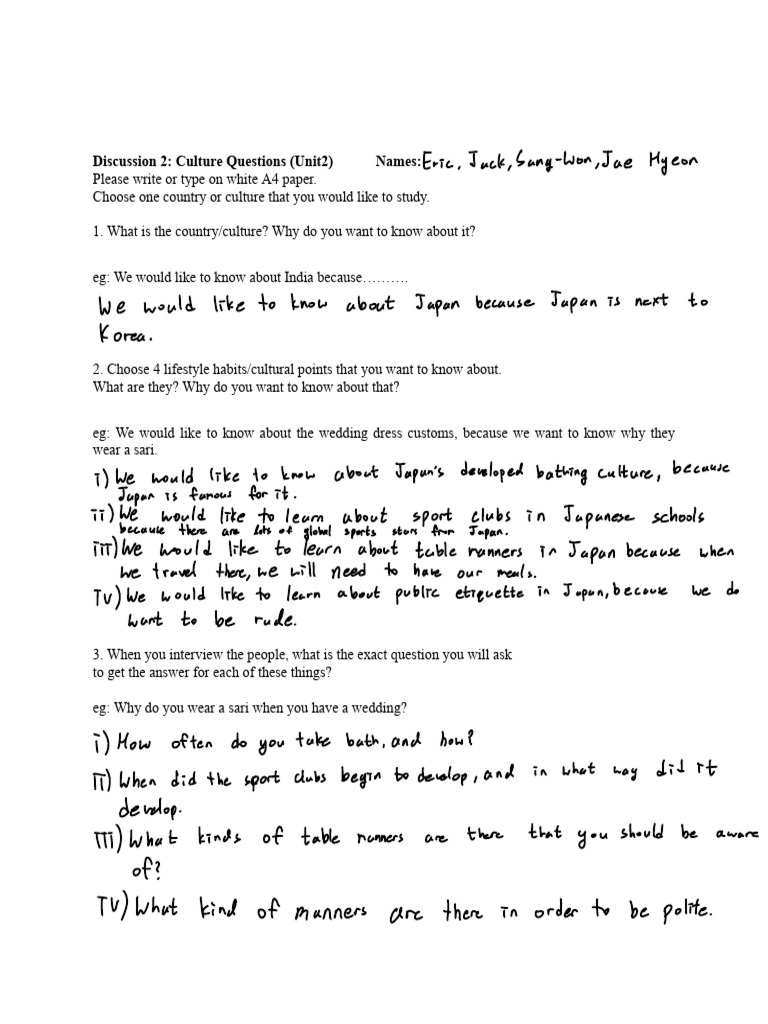 Discussion 2: Culture Questions (Unit2) Names: Eric, Jack, Sang-Won, Jae Hyeon
Please write or type on white A4 paper.
Choose one country or culture that you would like to study.
1. What is the country/culture? Why do you want to know about it?
eg: We would like to know about India because……….
We would like to know about Japan because Japan is next to
Korea.
2. Choose 4 lifestyle habits/cultural points that you want to know about.
What are they? Why do you want to know about that?
eg: We would like to know about the wedding dress customs, because we want to know why they
wear a sari.
i) We would like to know about Japan's developed bathing culture, because
Japan is famous for it.
ii) We would like to learn about sport clubs in Japanese schools
because there are lots of global sports stars from Japan.
iii) We would like to learn about table manners in Japan because when
we travel there, we will need to have our meals.
iv) We would like to learn about public etiquette in Japan, because we do
want to be rude.
3. When you interview the people, what is the exact question you will ask
to get the answer for each of these things?
eg: Why do you wear a sari when you have a wedding?
i) How often do you take bath, and how?
ii) When did the sport clubs begin to develop, and in what way did it
develop.
iii) What kinds of table manners are there that you should be aware
of?
iv) What kind of manners are there in order to be polite.